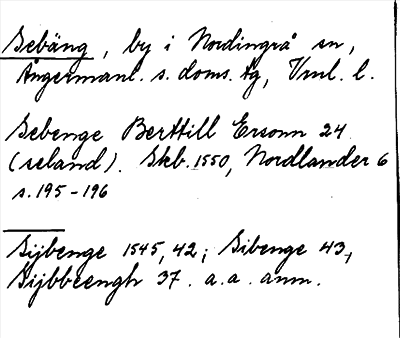 Sebäng, by i Nordingrå sn,
Ångermanl. s. doms. tg, Vnl. l.
Sebenge Berttill Ersonn 24
(seland). Skb. 1550, Nordlander 6
s. 195-196
Sijbenge 1545, 42; Sibenge 43,
Sijbbeengh 37. a.a. anm.